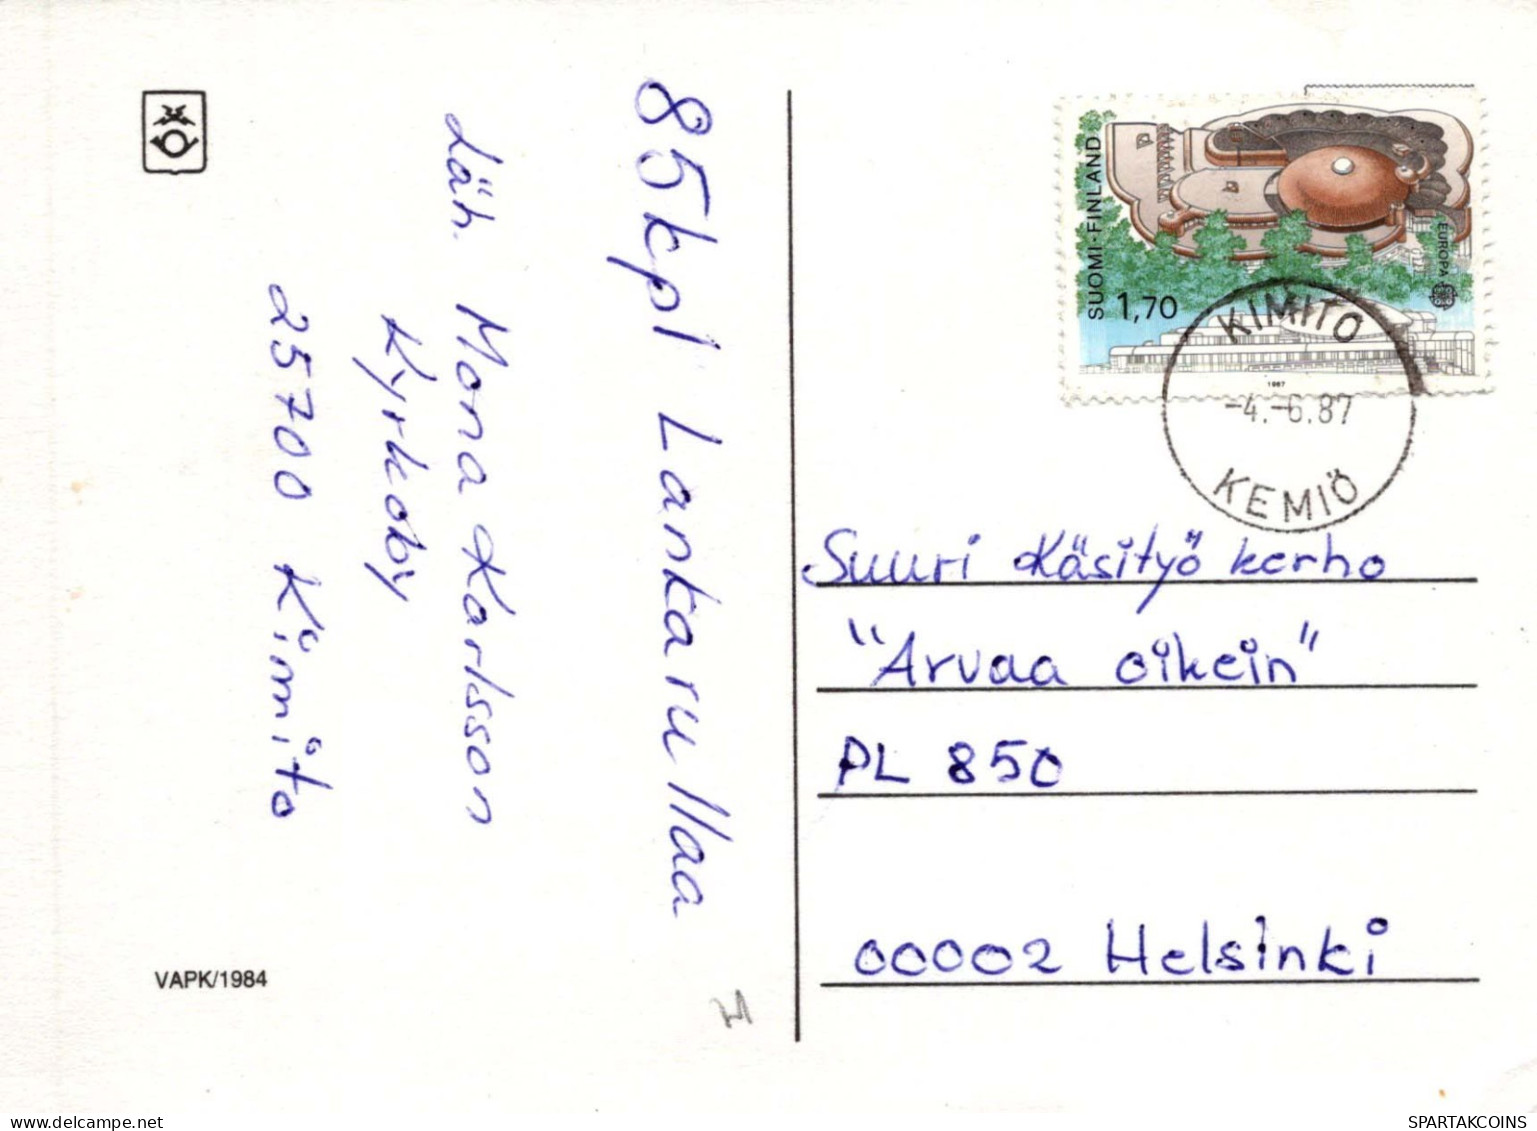 85 kpl Lankarullaa
Läh. Mona Karlsson
Kyrkoby
25700 Kimito
VAPK/1984
SUOMI-FINLAND
1,70
EUROPA
1987
KIMITO
-4.-6.87
KEMIÖ
Suuri Käsityö kerho
"Arvaa oikein"
PL 850
00002 Helsinki
SPARTAKCOINS